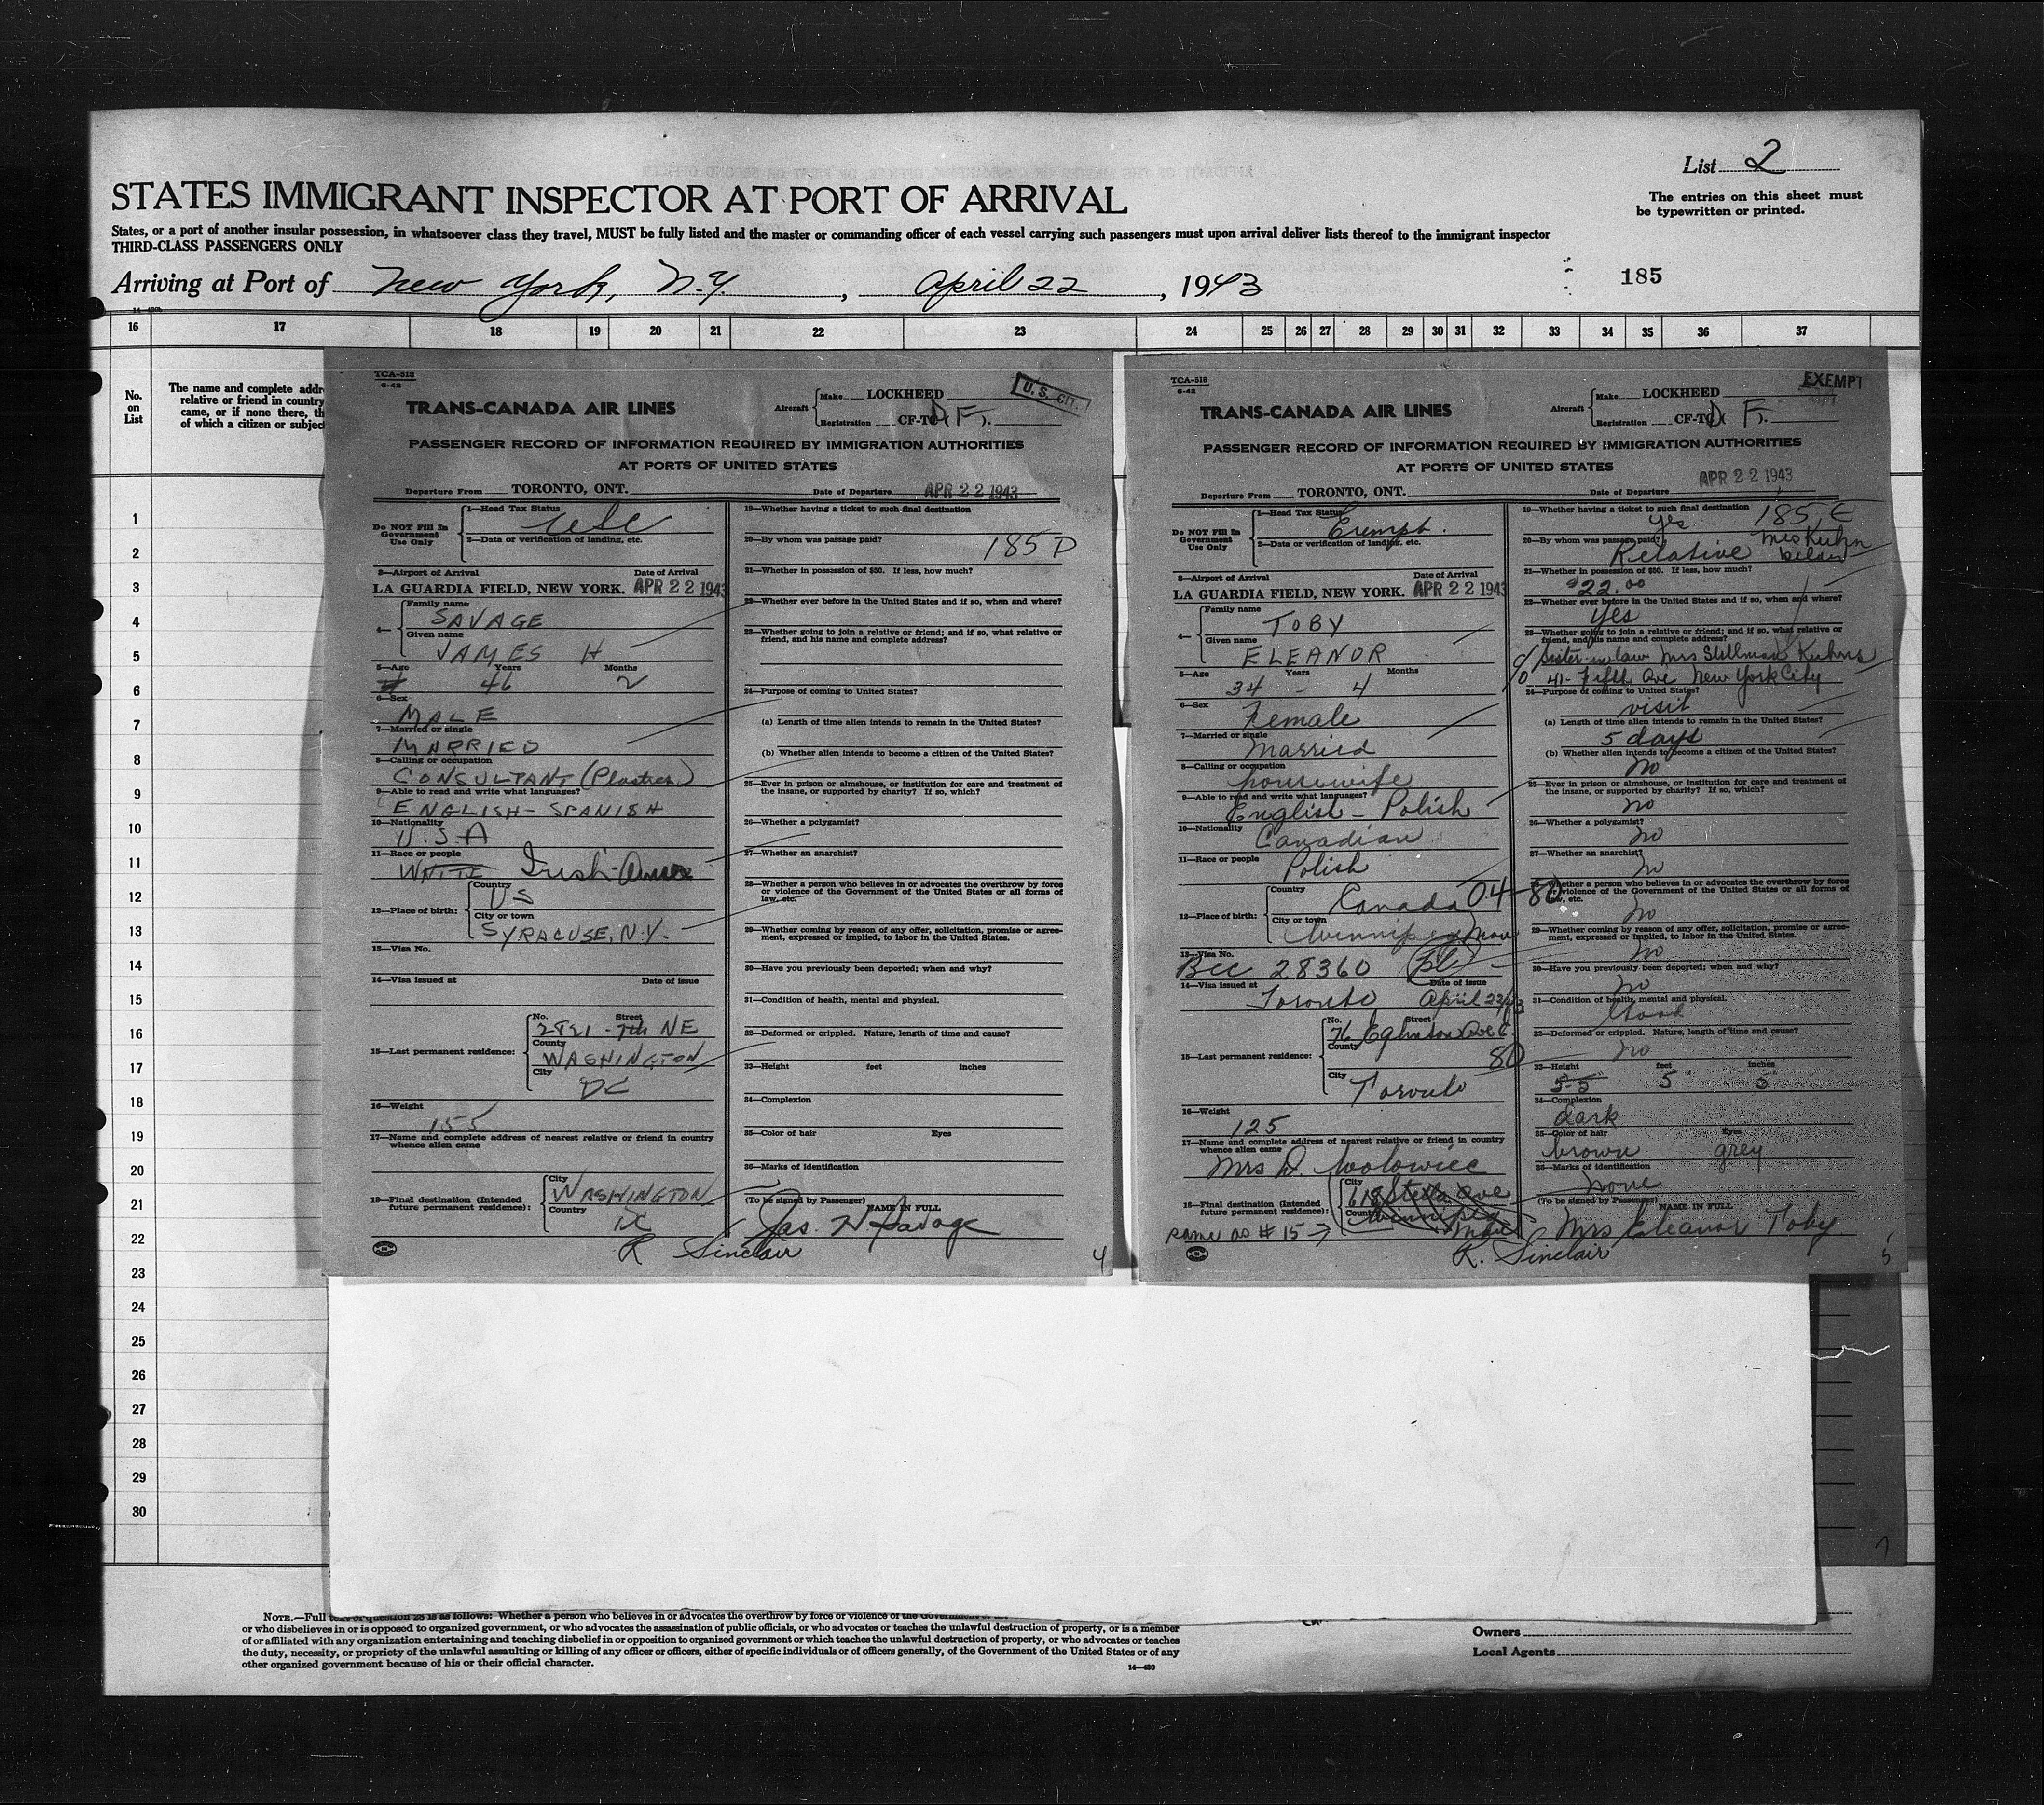 List 2
STATES IMMIGRANT INSPECTOR AT PORT OF ARRIVAL
The entries on this sheet must
be typewritten or printed.
States, or a port of another insular possession, in whatsoever class they travel, MUST be fully listed and the master or commanding officer of each vessel carrying such passengers must upon arrival deliver lists thereof to the immigrant inspector
THIRD-CLASS PASSENGERS ONLY
Arriving at Port of New York, N.Y., April 22, 1943
185
16 17 18 19 20 21 22 23 24 25 26 27 28 29 30 31 32 33 34 35 36 37
No.
on
List
The name and complete addr
relative or friend in country
came, or if none there, th
of which a citizen or subject
1
2
3
4
5
6
7
8
9
10
11
12
13
14
15
16
17
18
19
20
21
22
23
24
25
26
27
28
29
30
TCA-518
6-42
TRANS-CANADA AIR LINES
Aircraft
Make LOCKHEED
Registration CF-TC F.
U. S. CIT.
PASSENGER RECORD OF INFORMATION REQUIRED BY IMMIGRATION AUTHORITIES
AT PORTS OF UNITED STATES
Departure From TORONTO, ONT. Date of Departure APR 22 1943
Do NOT Fill In
Government
Use Only
1—Head Tax Status USC
2—Data or verification of landing, etc.
3—Airport of Arrival Date of Arrival
LA GUARDIA FIELD, NEW YORK. APR 22 1943
4—
Family name
SAVAGE
Given name
JAMES H
5—Age Years Months
46 2
6—Sex
MALE
7—Married or single
MARRIED
8—Calling or occupation
CONSULTANT (Plastics)
9—Able to read and write what languages?
ENGLISH - SPANISH
10—Nationality
U.S.A
11—Race or people
WHITE Irish-Amer
12—Place of birth:
Country
US
City or town
SYRACUSE, N.Y.
13—Visa No.
14—Visa issued at Date of issue
15—Last permanent residence:
No. Street
2821 - 7th NE
County
WASHINGTON
City
DC
16—Weight
155
17—Name and complete address of nearest relative or friend in country
whence alien came
18—Final destination (Intended
future permanent residence):
City
WASHINGTON
Country
DC
19—Whether having a ticket to such final destination
20—By whom was passage paid? 185 D
21—Whether in possession of $50. If less, how much?
22—Whether ever before in the United States and if so, when and where?
23—Whether going to join a relative or friend; and if so, what relative or
friend, and his name and complete address?
24—Purpose of coming to United States?
(a) Length of time alien intends to remain in the United States?
(b) Whether alien intends to become a citizen of the United States?
25—Ever in prison or almshouse, or institution for care and treatment of
the insane, or supported by charity? If so, which?
26—Whether a polygamist?
27—Whether an anarchist?
28—Whether a person who believes in or advocates the overthrow by force
or violence of the Government of the United States or all forms of
law, etc.
29—Whether coming by reason of any offer, solicitation, promise or agree-
ment, expressed or implied, to labor in the United States.
30—Have you previously been deported; when and why?
31—Condition of health, mental and physical.
32—Deformed or crippled. Nature, length of time and cause?
33—Height feet inches
34—Complexion
35—Color of hair Eyes
36—Marks of identification
(To be signed by Passenger) NAME IN FULL
Jas. H Savage
R Sinclair
4
TCA-518
6-42
TRANS-CANADA AIR LINES
Aircraft
Make LOCKHEED
Registration CF-TC F.
EXEMPT
PASSENGER RECORD OF INFORMATION REQUIRED BY IMMIGRATION AUTHORITIES
AT PORTS OF UNITED STATES
Departure From TORONTO, ONT. Date of Departure APR 22 1943
Do NOT Fill In
Government
Use Only
1—Head Tax Status
Exempt.
2—Data or verification of landing, etc.
3—Airport of Arrival Date of Arrival
LA GUARDIA FIELD, NEW YORK. APR 22 1943
4—
Family name
TOBY
Given name
ELEANOR
5—Age Years Months
34 - 4
6—Sex
Female
7—Married or single
Married
8—Calling or occupation
housewife
9—Able to read and write what languages?
English - Polish
10—Nationality
Canadian
11—Race or people
Polish
12—Place of birth:
Country
Canada 04-80
City or town
Winnipeg Man
13—Visa No.
BCC 28360
14—Visa issued at Date of issue
Toronto April 22/43
15—Last permanent residence:
No. Street
76 Eglinton Ave E.
County
80
City
Toronto
16—Weight
125
17—Name and complete address of nearest relative or friend in country
whence alien came
Mrs D. Wolowiec
18—Final destination (Intended
future permanent residence):
City
618 Stella Ave
Country
Winnipeg
Man
same as # 15 →
19—Whether having a ticket to such final destination
yes 185 E
20—By whom was passage paid? Mrs Kuhn
Relative below
21—Whether in possession of $50. If less, how much?
$22.00
22—Whether ever before in the United States and if so, when and where?
yes
23—Whether going to join a relative or friend; and if so, what relative or
friend, and his name and complete address?
c/o sister-in-law Mrs Stillman Kuhns
41- Fifth Ave New York City
24—Purpose of coming to United States?
visit
(a) Length of time alien intends to remain in the United States?
5 days
(b) Whether alien intends to become a citizen of the United States?
No
25—Ever in prison or almshouse, or institution for care and treatment of
the insane, or supported by charity? If so, which?
no
26—Whether a polygamist?
no
27—Whether an anarchist?
no
28—Whether a person who believes in or advocates the overthrow by force
or violence of the Government of the United States or all forms of
law, etc.
no
29—Whether coming by reason of any offer, solicitation, promise or agree-
ment, expressed or implied, to labor in the United States.
no
30—Have you previously been deported; when and why?
no
31—Condition of health, mental and physical.
Good
32—Deformed or crippled. Nature, length of time and cause?
no
33—Height feet inches
5-5" 5' 5"
34—Complexion
dark
35—Color of hair Eyes
brown grey
36—Marks of identification
none
(To be signed by Passenger) NAME IN FULL
Mrs Eleanor Toby
R. Sinclair
5
NOTE.—Full text of question 28 is as follows: Whether a person who believes in or advocates the overthrow by force or violence of the
or who disbelieves in or is opposed to organized government, or who advocates the assassination of public officials, or who advocates or teaches the unlawful destruction of property, or is a member
of or affiliated with any organization entertaining and teaching disbelief in or opposition to organized government or which teaches the unlawful destruction of property, or who advocates or teaches
the duty, necessity, or propriety of the unlawful assaulting or killing of any officer or officers, either of specific individuals or of officers generally, of the Government of the United States or of any
other organized government because of his or their official character.
14—430
Owners
Local Agents